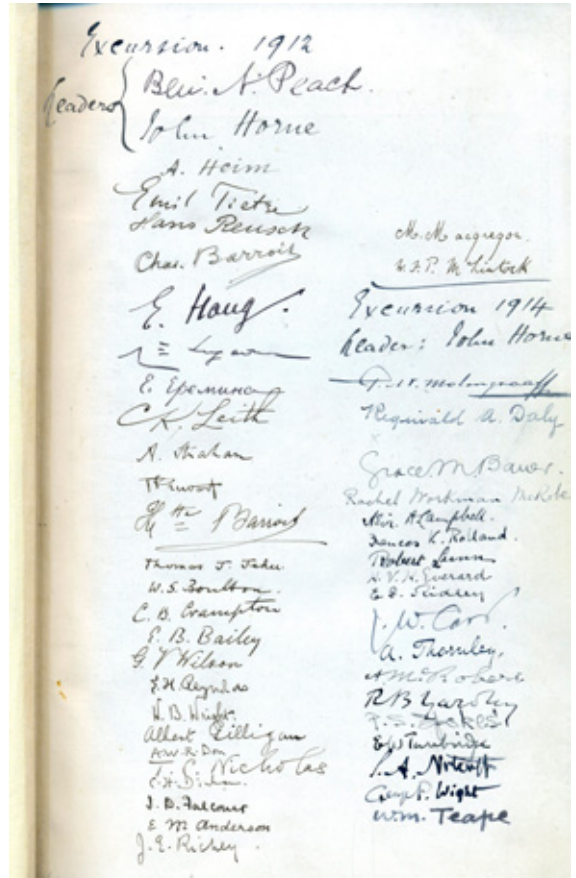 Excursion. 1912
Leaders
Ben. N. Peach.
John Horne
A. Heim
Emil Tietze
Hans Reusch
Chas. Barrois
E. Haug.
Е. Еремина
C. K. Leith
A. Strahan
Barrois
Thomas J. Jehu
W. S. Boulton.
C. B. Crampton
E. B. Bailey
G. V Wilson
S. H. Reynolds
W. B. Wright.
Albert Gilligan
T. C. Nicholas
J. D. Falconer
E. M. Anderson
J. E. Richey.
M. Macgregor.
Excursion 1914
Leader: John Horne
G. A. F. Molengraaff
Reginald A. Daly
Grace M. Bauer.
Rachel Workman McRobe
A Campbell.
Robert Lunn
H. V. H. Everard
J. W. Carr.
A. Thornley,
A McRobert
R B Yardley
E W Tunbridge
Wight
Wm. Teape